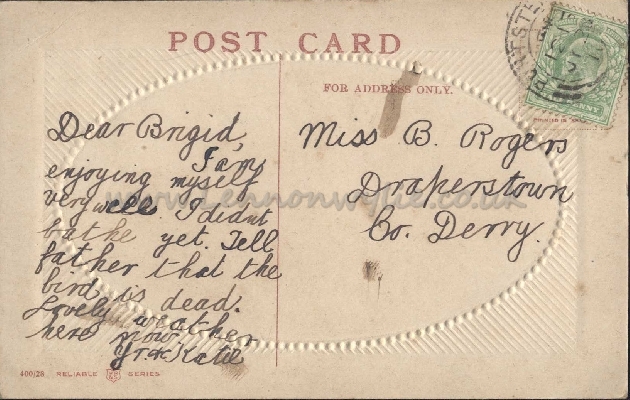 POST CARD
FOR ADDRESS ONLY.
Dear Brigid,
I am
enjoying myself
very well. I didnt
bathe yet. Tell
father that the
bird is dead.
Lovely weather
here now.
Katie
Miss B. Rogers
Draperstown
Co. Derry.
400/28 RELIABLE SERIES